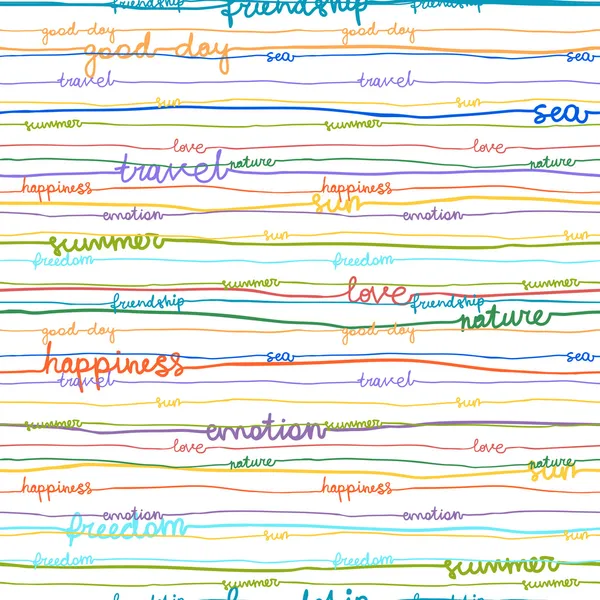 friendship friendship
good-day good-day
good-day sea sea
travel travel
sun sun
sea
summer summer
love love
travel nature nature
happiness happiness
sun
emotion emotion
summer sun sun
freedom freedom
summer summer
love
friendship friendship
nature
good-day good-day
sea sea
happiness
travel travel
sun sun
summer emotion summer
love love
nature nature
sun
happiness happiness
emotion emotion
freedom
sun sun
freedom freedom
summer
summer summer